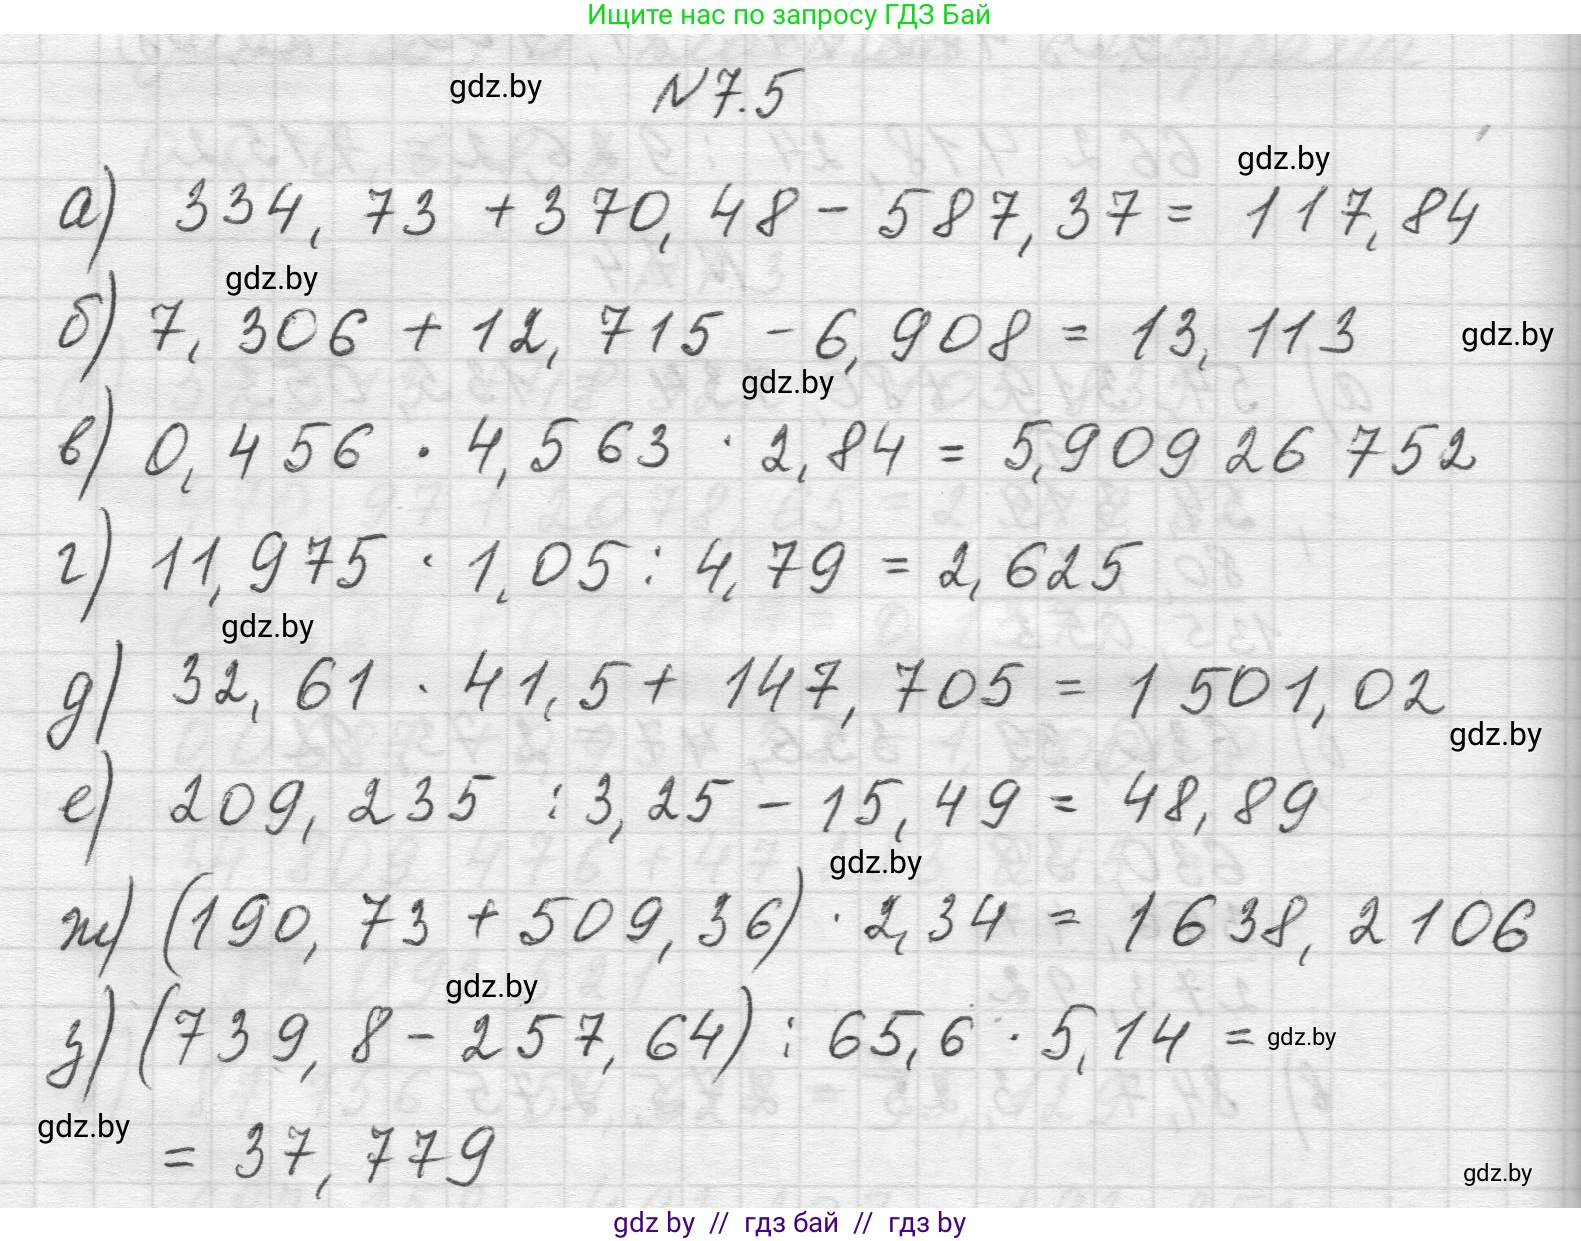 Ищите нас по запросу ГДЗ Бай
gdz.by
N 7.5
gdz.by
а) 334,73 + 370,48 - 587,37 = 117,84
gdz.by
б) 7,306 + 12,715 - 6,908 = 13,113
gdz.by
gdz.by
в) 0,456 · 4,563 · 2,84 = 5,90926752
г) 11,975 · 1,05 : 4,79 = 2,625
gdz.by
д) 32,61 · 41,5 + 147,705 = 1501,02
gdz.by
е) 209,235 : 3,25 - 15,49 = 48,89
gdz.by
ж) (190,73 + 509,36) · 2,34 = 1638,2106
gdz.by
з) (739,8 - 257,64) : 65,6 · 5,14 =
gdz.by
gdz.by
= 37,779
gdz.by
gdz by // гдз бай // гдз by